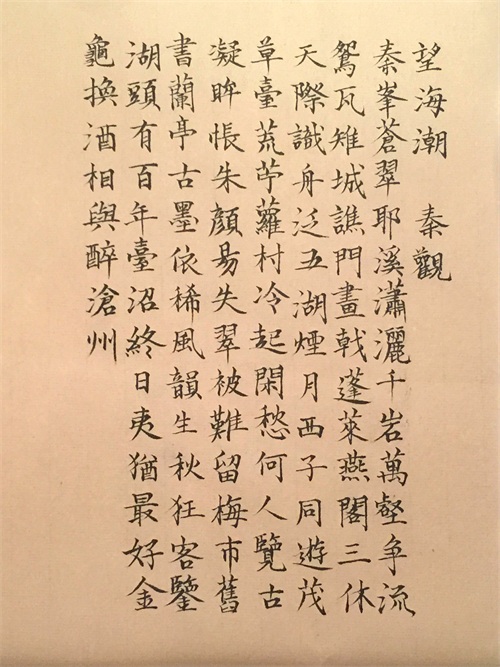 望海潮 秦觀
秦峯蒼翠耶溪瀟灑千岩萬壑争流
鴛瓦雉城譙門畫戟蓬萊燕閣三休
天際識舟泛五湖煙月西子同遊茂
草臺荒苧蘿村冷起閑愁何人覽古
凝眸悵朱顏易失翠被難留梅市舊
書蘭亭古墨依稀風韻生秋狂客鑒
湖頭有百年臺沼終日夷猶最好金
龜換酒相與醉滄州